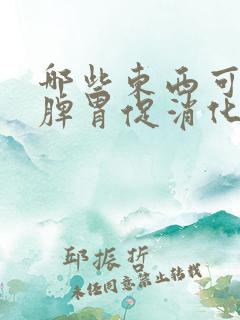 哪些东西可
脾胃促消化
邱振哲
未经同意禁止转载